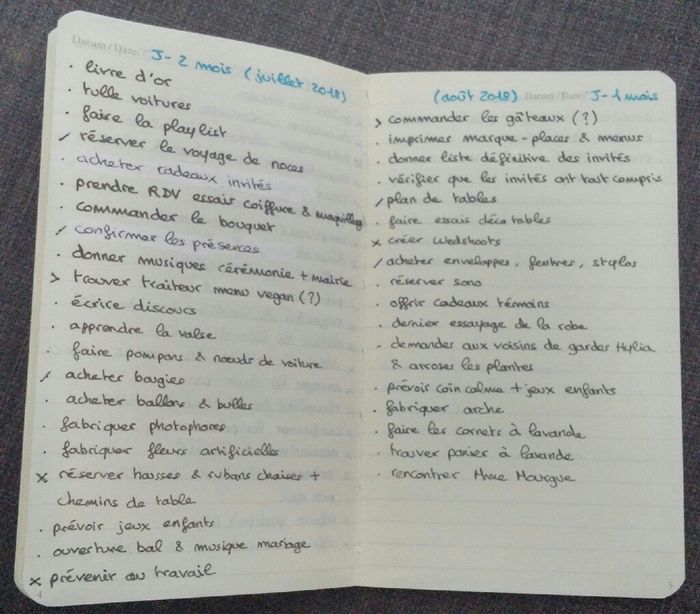 Datum / Date: J - 2 mois (juillet 2018)
· livre d'or
· tulle voitures
· faire la playlist
/ réserver le voyage de noces
· acheter cadeaux invités
· prendre RDV essais coiffure & maquillage
· commander le bouquet
/ confirmer les présences
· donner musiques cérémonie + mairie
> trouver traiteur menu vegan (?)
· écrire discours
· apprendre la valse
· faire pompons & nœuds de voiture
/ acheter bougies
· acheter ballons & bulles
· fabriquer photophores
· fabriquer fleurs artificielles
x réserver housses & rubans chaises +
chemins de table
· prévoir jeux enfants
· ouverture bal & musique mariage
x prévenir au travail
4
(août 2018) Datum / Date: J - 1 mois
> commander les gâteaux (?)
· imprimer marque-places & menus
· donner liste définitive des invités
· vérifier que les invités ont tout compris
/ plan de tables
· faire essais déco tables
x créer wedshoots
/ acheter enveloppes, feutres, stylos
· réserver sono
· offrir cadeaux témoins
· dernier essayage de la robe
· demander aux voisins de garder Hylia
& arroser les plantes
· prévoir coin calme + jeux enfants
· fabriquer arche
· faire les cornets à lavande
· trouver panier à lavande
· rencontrer Mme Margue
5